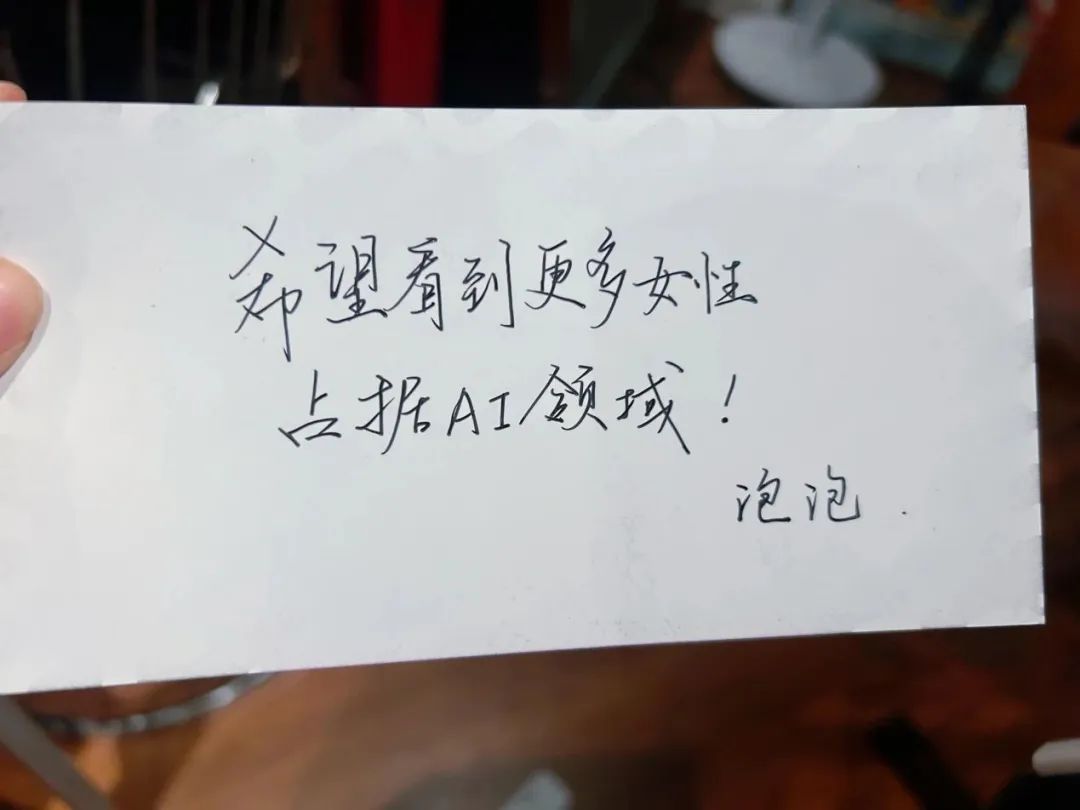 希望看到更多女性
占据AI领域！
泡泡.